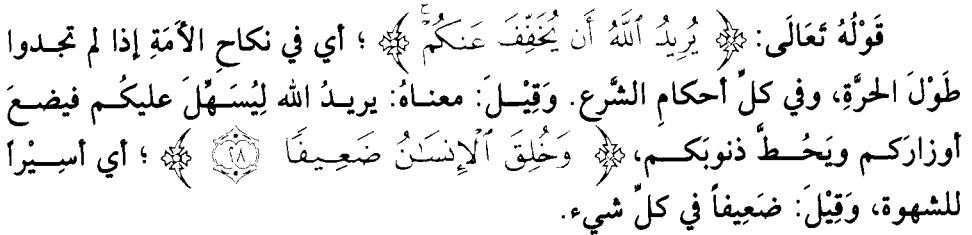 قَوْلُهُ تَعَالَى: ﴿ يُرِيدُ ٱللَّهُ أَن يُخَفِّفَ عَنكُمْ ۚ ﴾ ؛ أي في نكاحِ الأَمَةِ إذا لم تجدوا
طَوْلَ الحرَّةِ، وفي كلِّ أحكامِ الشَّرع. وَقِيْـلَ: معناهُ: يريدُ الله لِيُسَهِّلَ عليكُـم فيضعَ
أوزارَكـم ويَحُـطَّ ذنوبَكـم، ﴿ وَخُلِقَ ٱلْإِنسَـٰنُ ضَعِـيفًا ۝٢٨ ﴾ ؛ أي أسِـيْراً
للشهوة، وَقِيْلَ: ضَعِيفاً في كلِّ شيء.